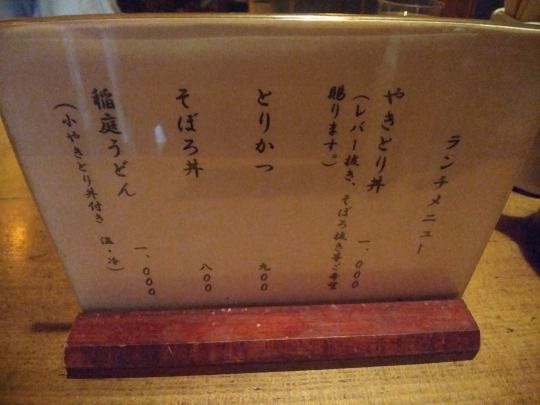 ランチメニュー
やきとり丼 一、〇〇〇
(レバー抜き、そぼろ抜き等ご要望
賜ります。)
とりかつ 九〇〇
そぼろ丼 八〇〇
稲庭うどん 一、〇〇〇
(小やきとり丼付き 温・冷)